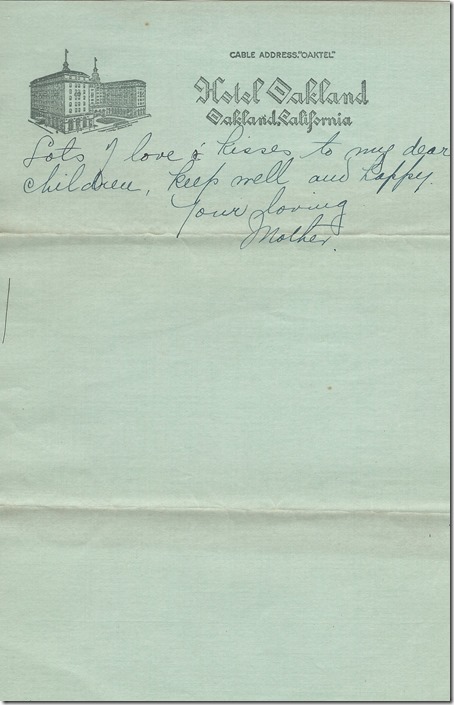 CABLE ADDRESS."OAKTEL"
Hotel Oakland
Oakland, California
Lots of love & kisses to my dear
children, keep well and happy.
Your loving
Mother.